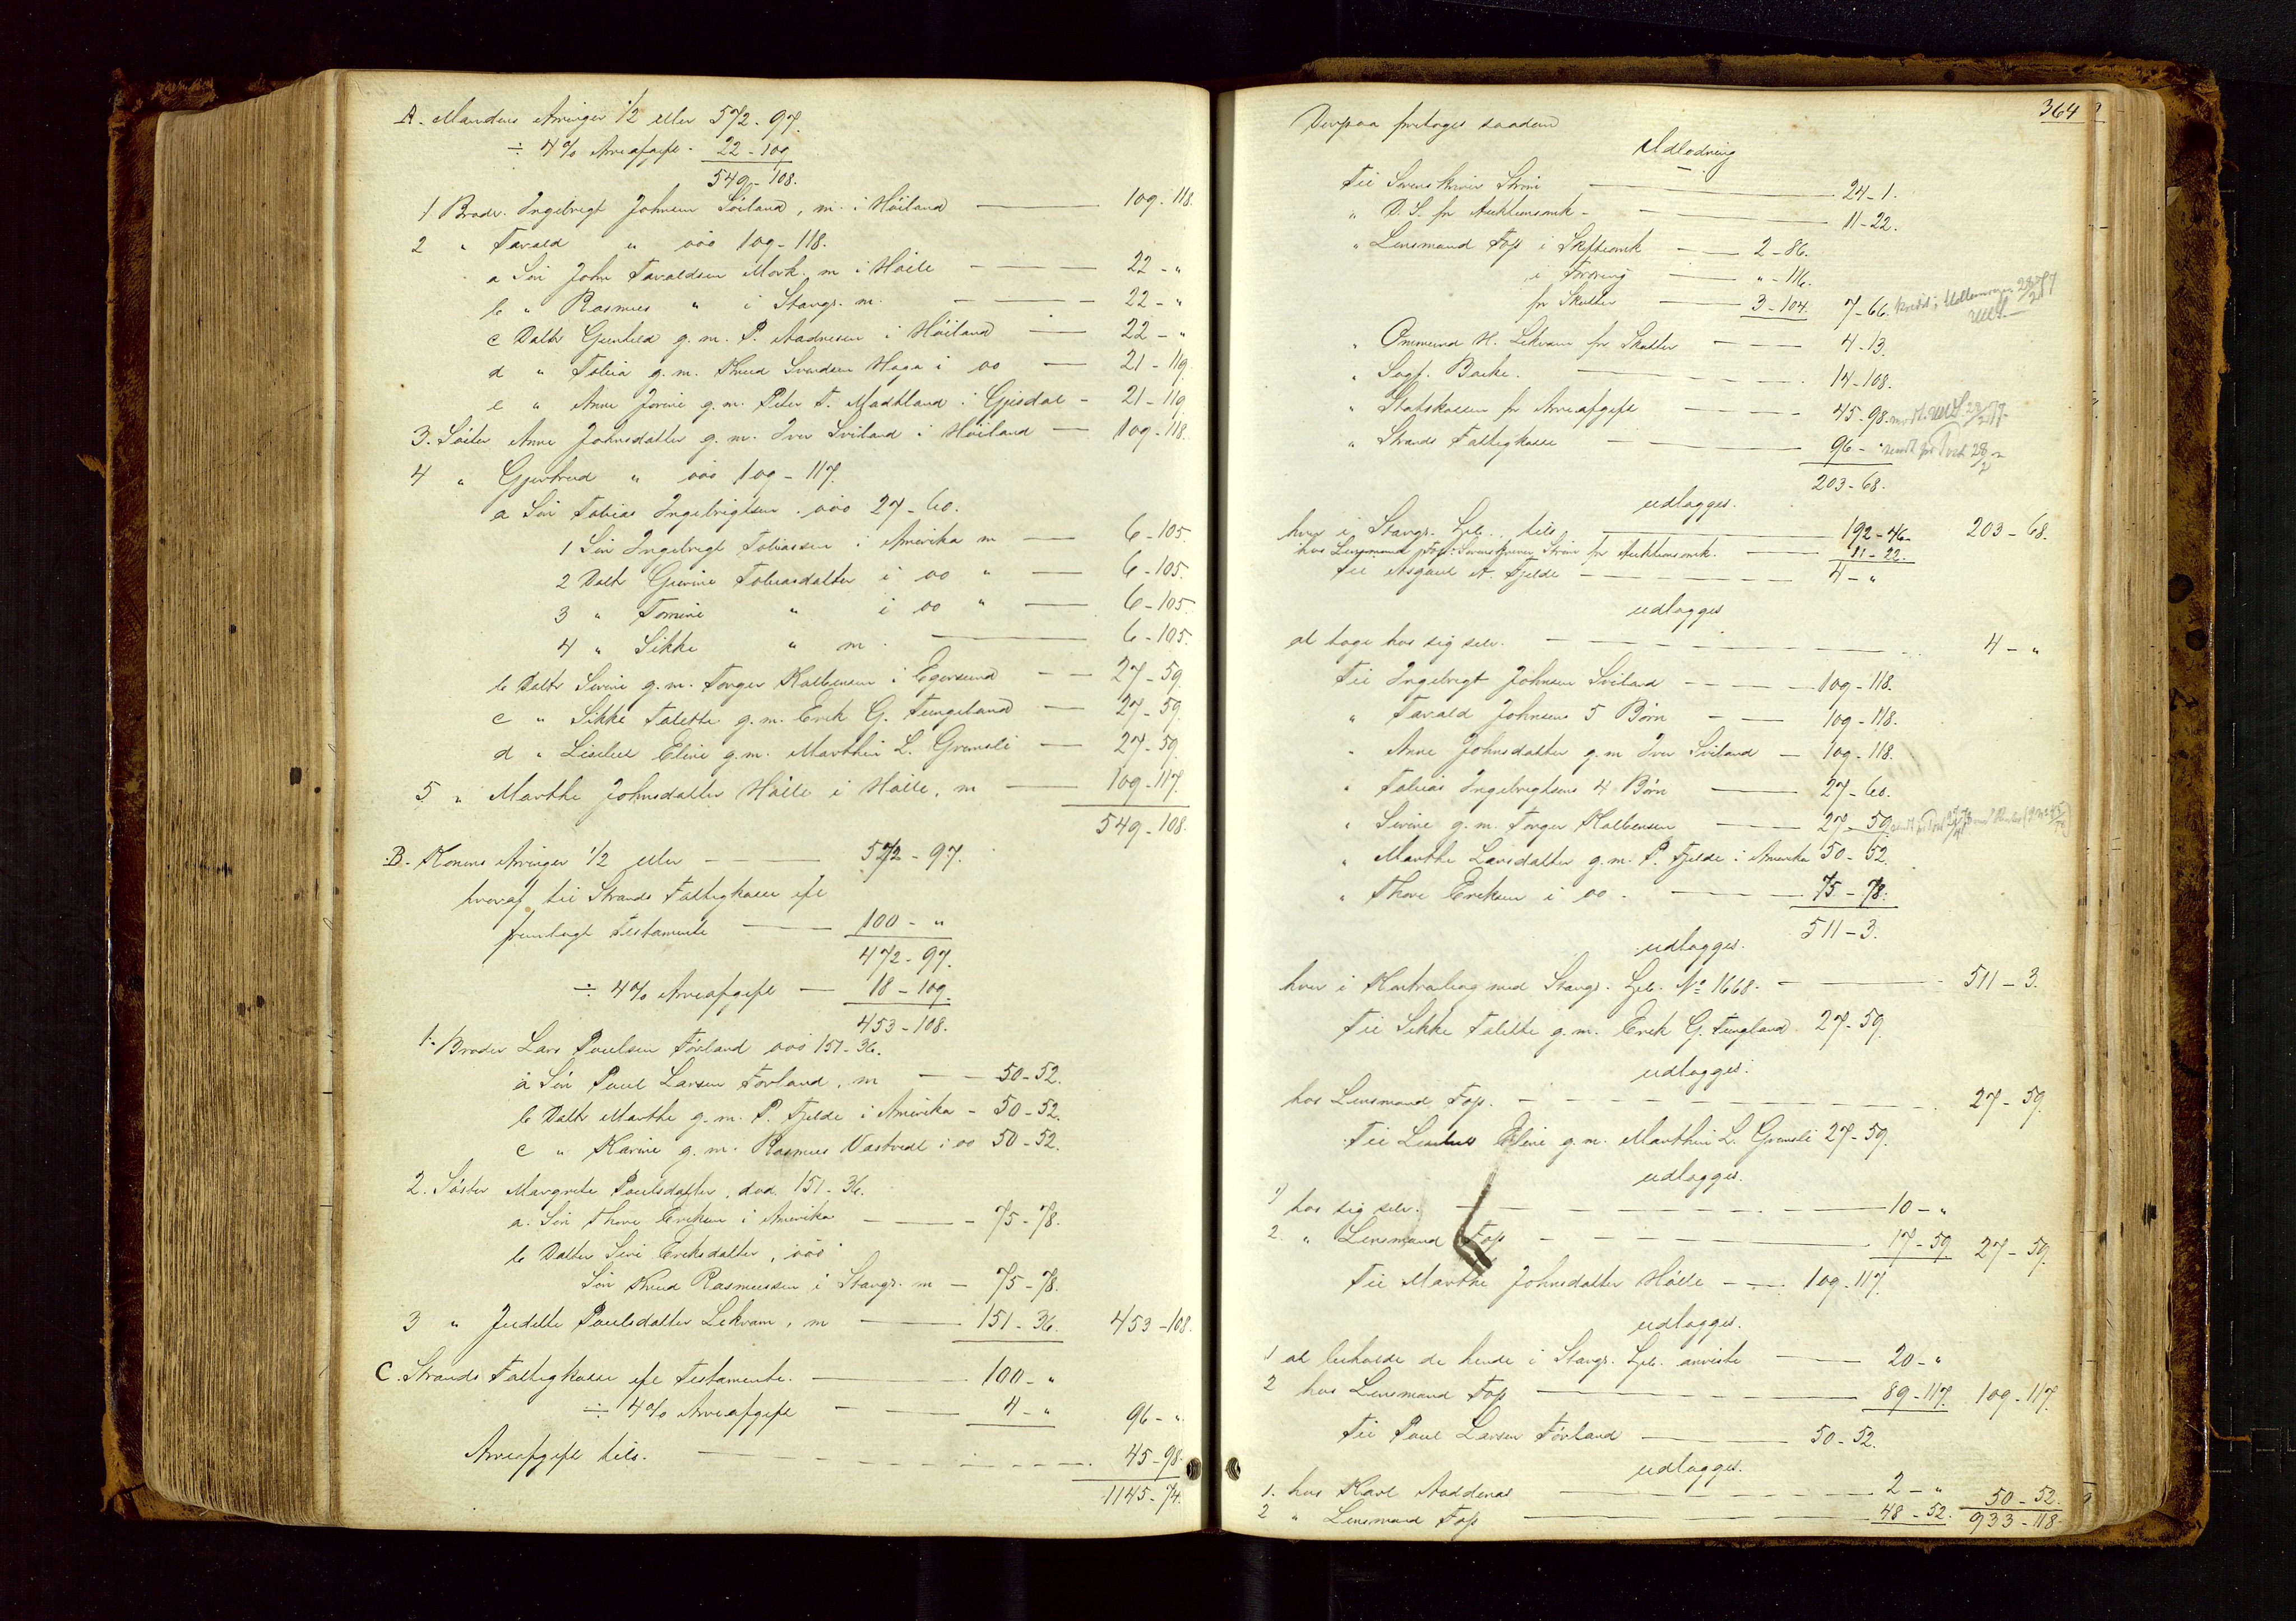 A. Mandens Arvinger 1/2 eller 572-97.
÷ 4% Arveafgift - 22-109
549-108.
1 Broder Ingebrigt Johnsen Sviland, m. i Höiland — 109-118.
2 " Tarald " död 109-118.
a Sön John Taraldsen Mork, m i Hölle — 22-"
b " Rasmus " i Stavgr. m. — 22-"
c Datter Gunhild g. m. P. Aadnesen i Höiland — 22-"
d " Tobia g. m. Knud Svendsen Haga i do — 21-119
e " Anne Jorine g. m. Peter T. Madtland i Gjesdal - 21-119
3. Söster Anne Johnsdatter g. m. Iver Sviland i Höiland — 109-118.
4 " Gjertrud " död 109-117.
a Sön Tobias Ingebrigtsen, död 27-60.
1 Sön Ingebrigt Tobiassen i Amerika m — 6-105.
2 Datt Gurine Tobiasdatter i do " — 6-105.
3 " Tomine " i do " — 6-105.
4 " Sikke " m. — 6-105.
b Datter Serine g. m. Torger Kolbensen i Egersund — 27-59.
c " Sikke Talette g. m. Erik G. Tungeland — 27-59.
d " Lisebet Eline g. m. Marthin L. Gramsli — 27-59
5 " Marthe Johnsdatter Hölle i Hölle, m — 109-117.
549-108.
B. Konens Arvinger 1/2 eller — 572-97.
hvoraf til Strands Fattigkasse eft
fremlagt Testamente — 100-"
472-97.
÷ 4% Arveafgift — 18-109.
453-108.
1. Broder Lars Paulsen Förland död 151-36.
a Sön Paul Larsen Förland, m — 50-52.
b Datter Marthe g. m. P. Fjelde i Amerika - 50-52.
c " Karine g. m. Rasmus Vastvedt i do 50-52.
2. Söster Margrete Paulsdatter, död. 151-36.
a. Sön Thore Eriksen i Amerika — 75-78.
b Datter Siri Eriksdatter, död
Sön Knud Rasmussen i Stavgr. m — 75-78.
3 " Judithe Paulsdatter Lekvam, m — 151-36. 453-108.
C. Strands Fattigkasse eft Testamente. — 100-"
÷ 4% Arveafgift — 4-" 96-".
Arveafgift tils. — 45-98.
1145-74.
364
Derpaa foretoges saadan
Udlodning
Til Sorenskriver Ström — 24-1.
" D. S. for Auktionsomk- — 11-22.
" Lensmand Top i Skifteomk — 2-86.
i Foröring — "-116.
for Skatter — 3-104. 7-66.
" Ommund H. Lekvam for Skatter — 4-13.
" Sagf. Barke. — 14-108.
" Statskassen for Arveafgift — 45-98.
" Strands Fattigkasse — 96-" sendt pr Post 28/2
203-68.
udlægges.
hver i Stavgr. Spb. tils. — 192-46. 203-68.
hos Lensmand Top: Sorenskriver Ström for Auktionsomk. — 11-22.
Til Asgaut A. Fjelde — 4-"
udlægges
at tage hos sig selv. — 4-"
Til Ingebrigt Johnsen Sviland — 109-118.
" Tarald Johnsens 5 Børn — 109-118.
" Anne Johnsdatter g. m Iver Sviland — 109-118.
" Tobias Ingebrigtsens 4 Børn — 27-60.
" Serine g. m. Torger Kolbensen — 27-59
" Marthe Larsdatter g. m. P. Fjelde i Amerika 50-52.
" Thore Eriksen i do. — 75-78.
511-3.
udlægges.
hver i Kontrabog med Stavgr. Spb. No 1668. — 511-3.
Til Sikke Talette g. m. Erik G. Tungland 27-59.
udlægges.
hos Lensmand Top. — 27-59.
Til Eline g. m. Marthin L. Gramsli 27-59.
udlægges.
1) hos sig selv. — 10-"
2. " Lensmand Top — 17-59 27-59.
Til Marthe Johnsdatter Hölle — 109-117.
udlægges.
1 at beholde de hende i Stavgr. Spb. anviste — 20-"
2 hos Lensmand Top — 89-117. 109-117.
Til Paul Larsen Förland — 50-52.
udlægges.
1. hos Karl Aaddenes — 2-" 50-52.
2 " Lensmand Top — 48-52. 933-118.